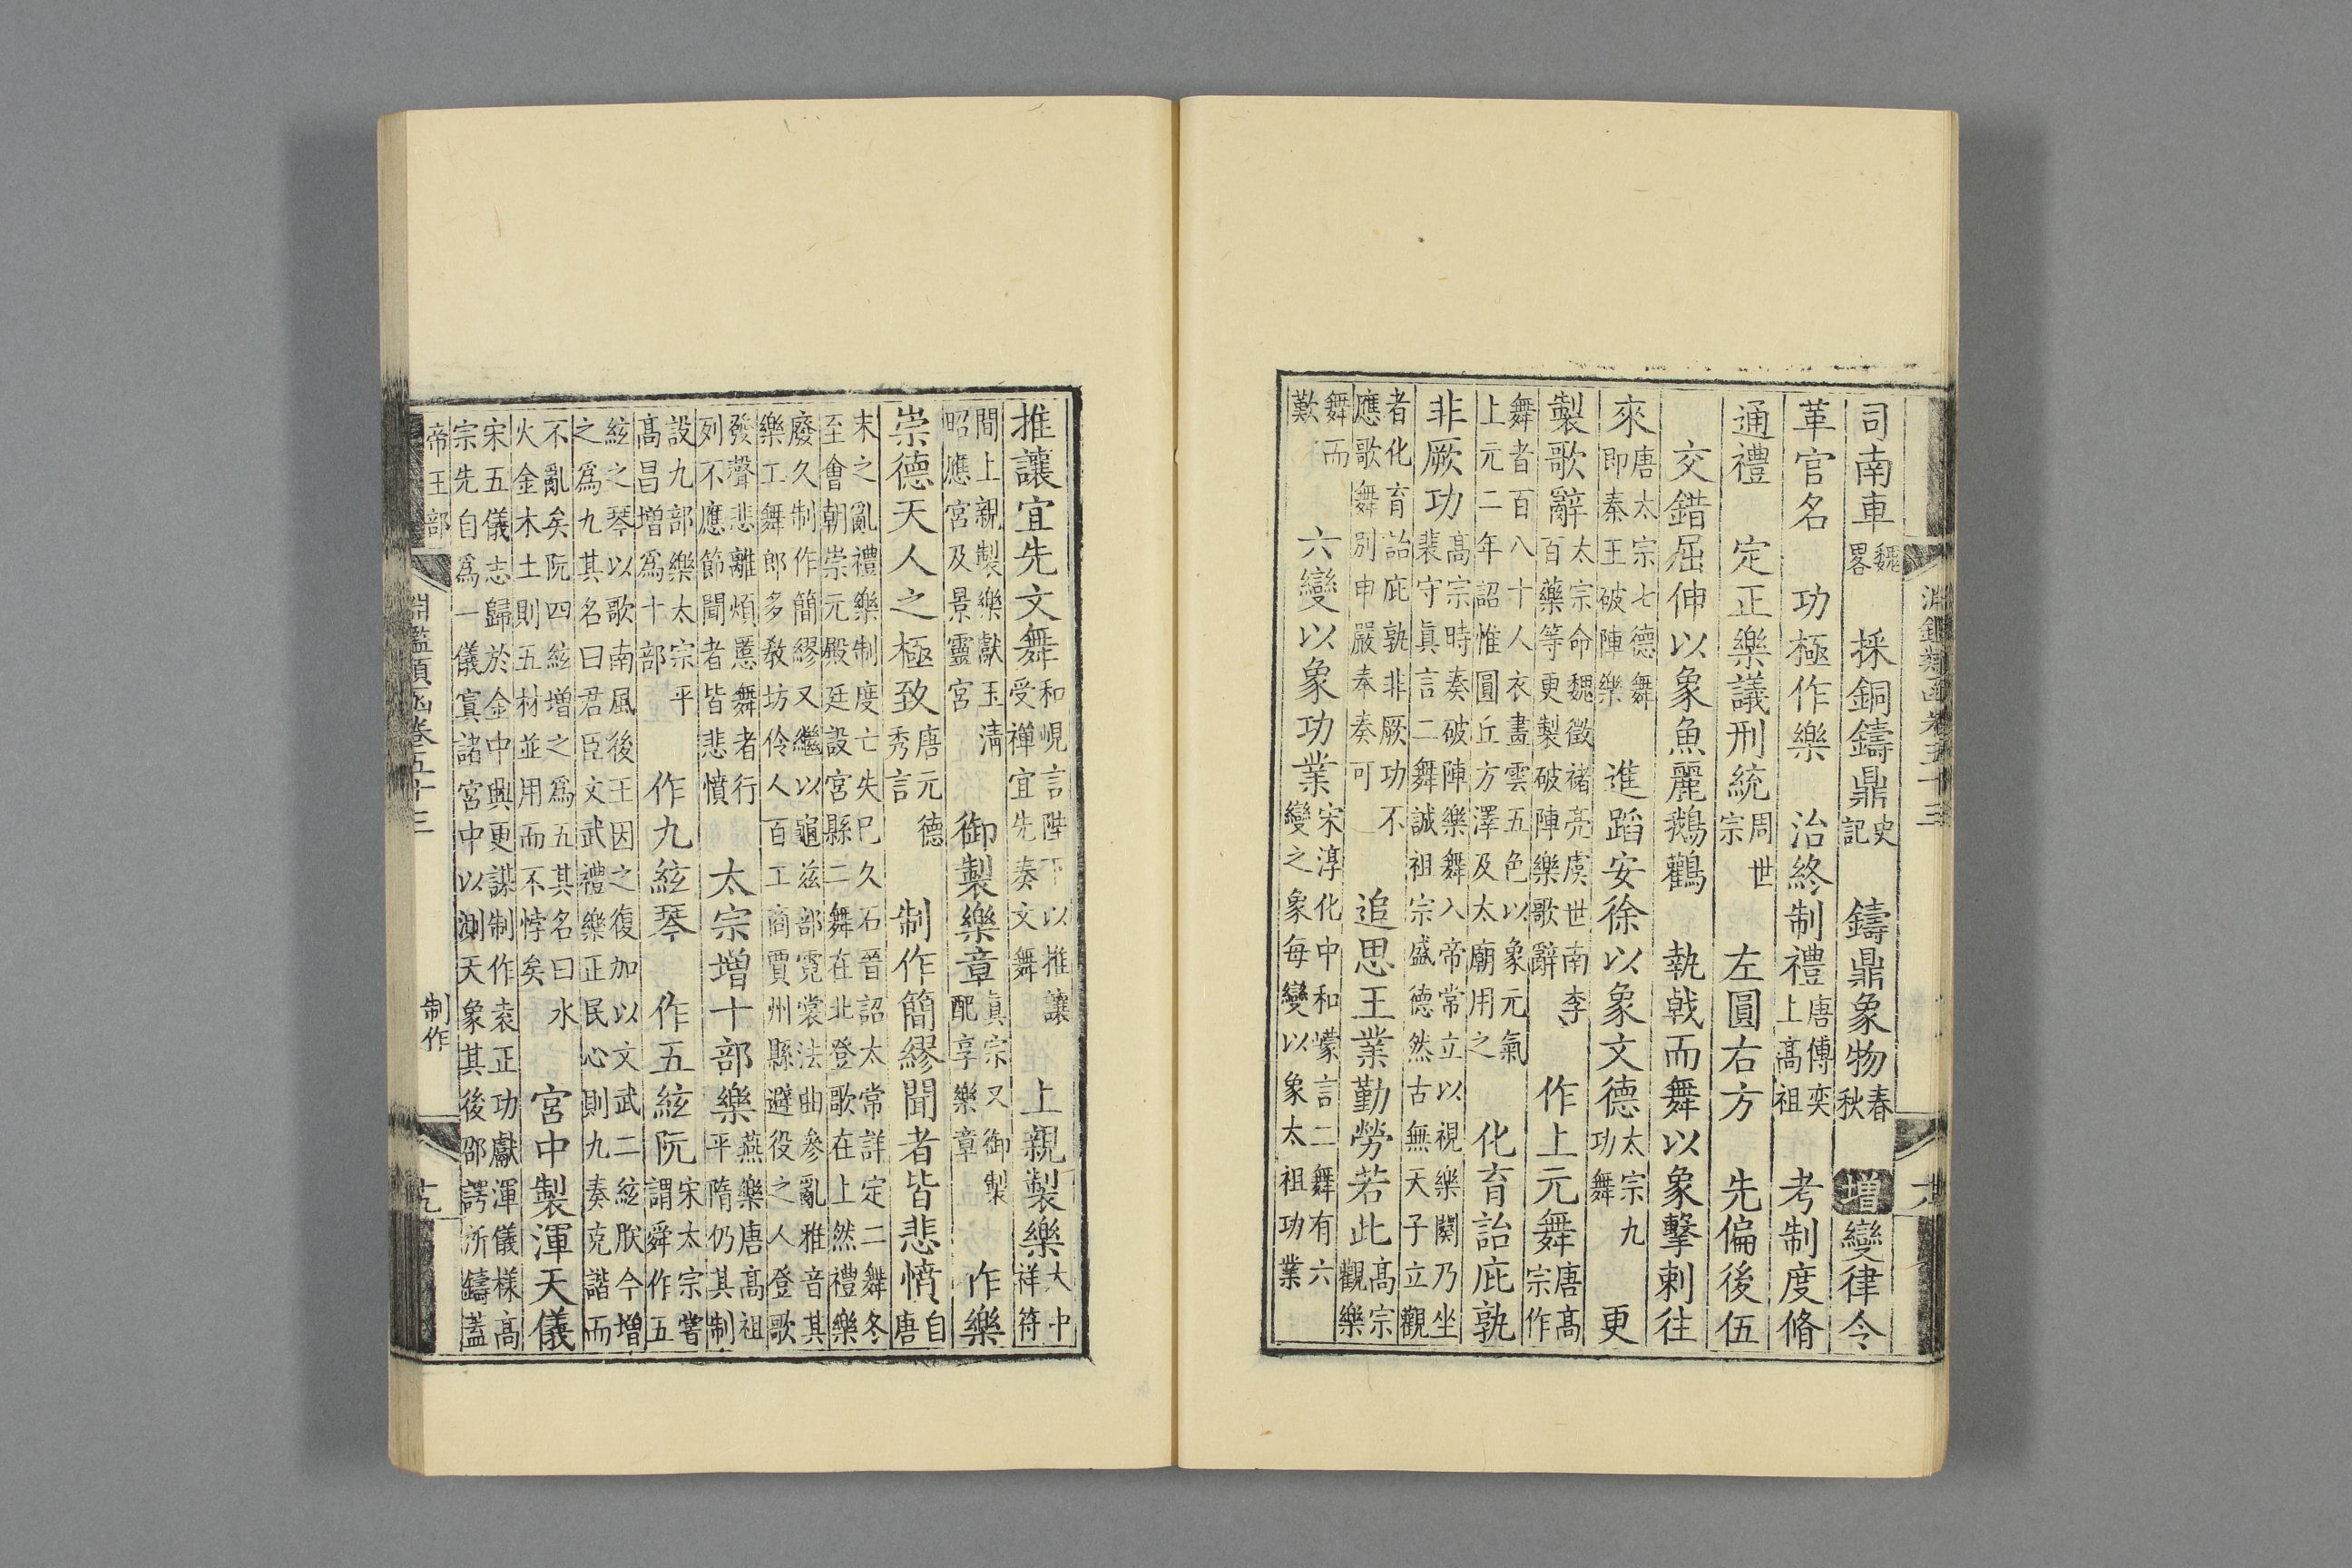 淵鑑類函卷五十三
司南車魏畧 採銅鑄鼎史記 鑄鼎象物春秋 增變律令
革官名 功極作樂 治終制禮唐傅奕上高祖 考制度脩
通禮 定正樂議刑統周世宗 左圓右方 先偏後伍
交錯屈伸以象魚麗鵝鸛 執戟而舞以象擊刺往
來唐太宗七德舞即秦王破陣樂 進蹈安徐以象文德太宗九功舞 更
製歌辭太宗命魏徵褚亮虞世南李百藥等更製破陣樂歌辭 作上元舞唐高宗作
舞者百八十人衣畫雲五色以象元氣上元二年詔惟圓丘方澤及太廟用之 化育詒庇孰
非厥功高宗時奏破陣樂舞入帝常立以視樂闋乃坐裴守真言二舞誠祖宗盛德然古無天子立觀
者化育詒庇孰非厥功不應歌舞別申嚴奉奏可 追思王業勤勞若此高宗觀樂
舞而歎 六變以象功業宋淳化中和㠓言二舞有六變之象每變以象太祖功業
推讓宜先文舞和峴言陛下以推讓受禪宜先奏文舞 上親製樂大中祥符
間上親製樂獻玉清昭應宮及景靈宮 御製樂章真宗又御製配享樂章 作樂
崇德天人之極致唐元德秀言 制作簡繆聞者皆悲憤自唐
末之亂禮樂制度亡失已久石晉詔太常詳定二舞冬至會朝崇元殿廷設宮縣二舞在北登歌在上然禮樂
廢久制作簡繆又繼以龜茲部霓裳法曲參亂雅音其樂工舞郎多教坊伶人百工商賈州縣避役之人登歌
發聲悲離煩慝舞者行列不應節聞者皆悲憤 太宗增十部樂燕樂唐高祖平隋仍其制
設九部樂太宗平高昌增為十部 作九絃琴 作五絃阮宋太宗嘗謂舜作五
絃之琴以歌南風後王因之復加以文武二絃朕今增之為九其名曰君臣文武禮樂正民心則九奏克諧而
不亂矣阮四絃增之為五其名曰水火金木土則五材並用而不悖矣 宮中製渾天儀
宋五儀志歸於金中興更謀制作袁正功獻渾儀樣高宗先自為一儀寘諸宮中以測天象其後邵諤所鑄蓋
帝王部 淵鑑類函卷五十三 制作